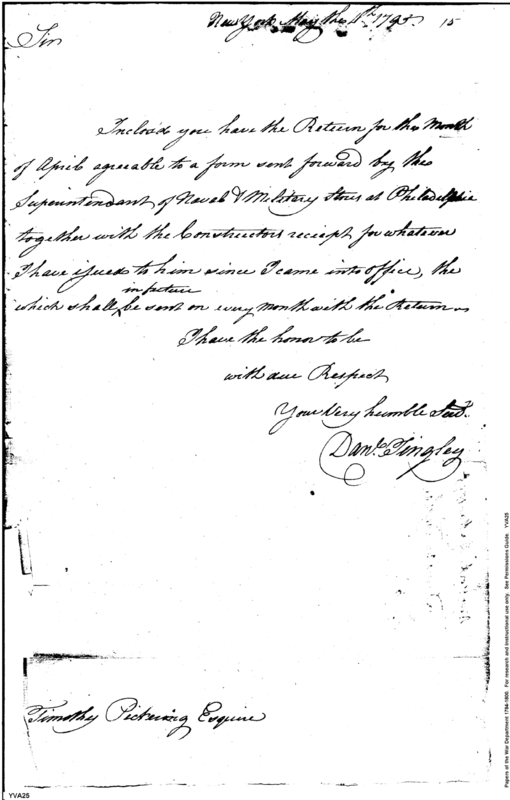 New York May the 11th 1795 15
Sir
Inclosd you have the Return for the Month
of April agreable to a form sent forward by the
Superintendant of Naval & Miletery Stores at Philadelphia
together with the Constructors receipt for whatever
I have issued to him since I came into office, the
in future
which shall ^ be sent on every month with the Return
I have the honor to be
with due Respect
Your Very humble Servt.
Danl. Tingley
Timothy Pickering Esquire
YVA25
Papers of the War Department 1784-1800. For research and instructional use only. See Permissions Guide. YVA25